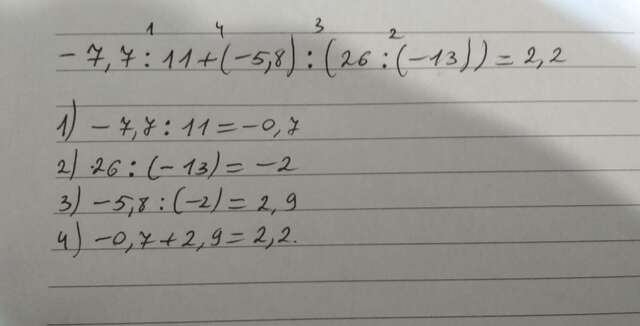 1 4 3 2
- 7,7 : 11 + (-5,8) : (26 : (-13)) = 2,2
1) - 7,7 : 11 = -0,7
2) 26 : (-13) = -2
3) -5,8 : (-2) = 2,9
4) -0,7 + 2,9 = 2,2.